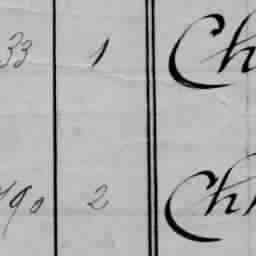 33 1 Ch
190 2 Ch